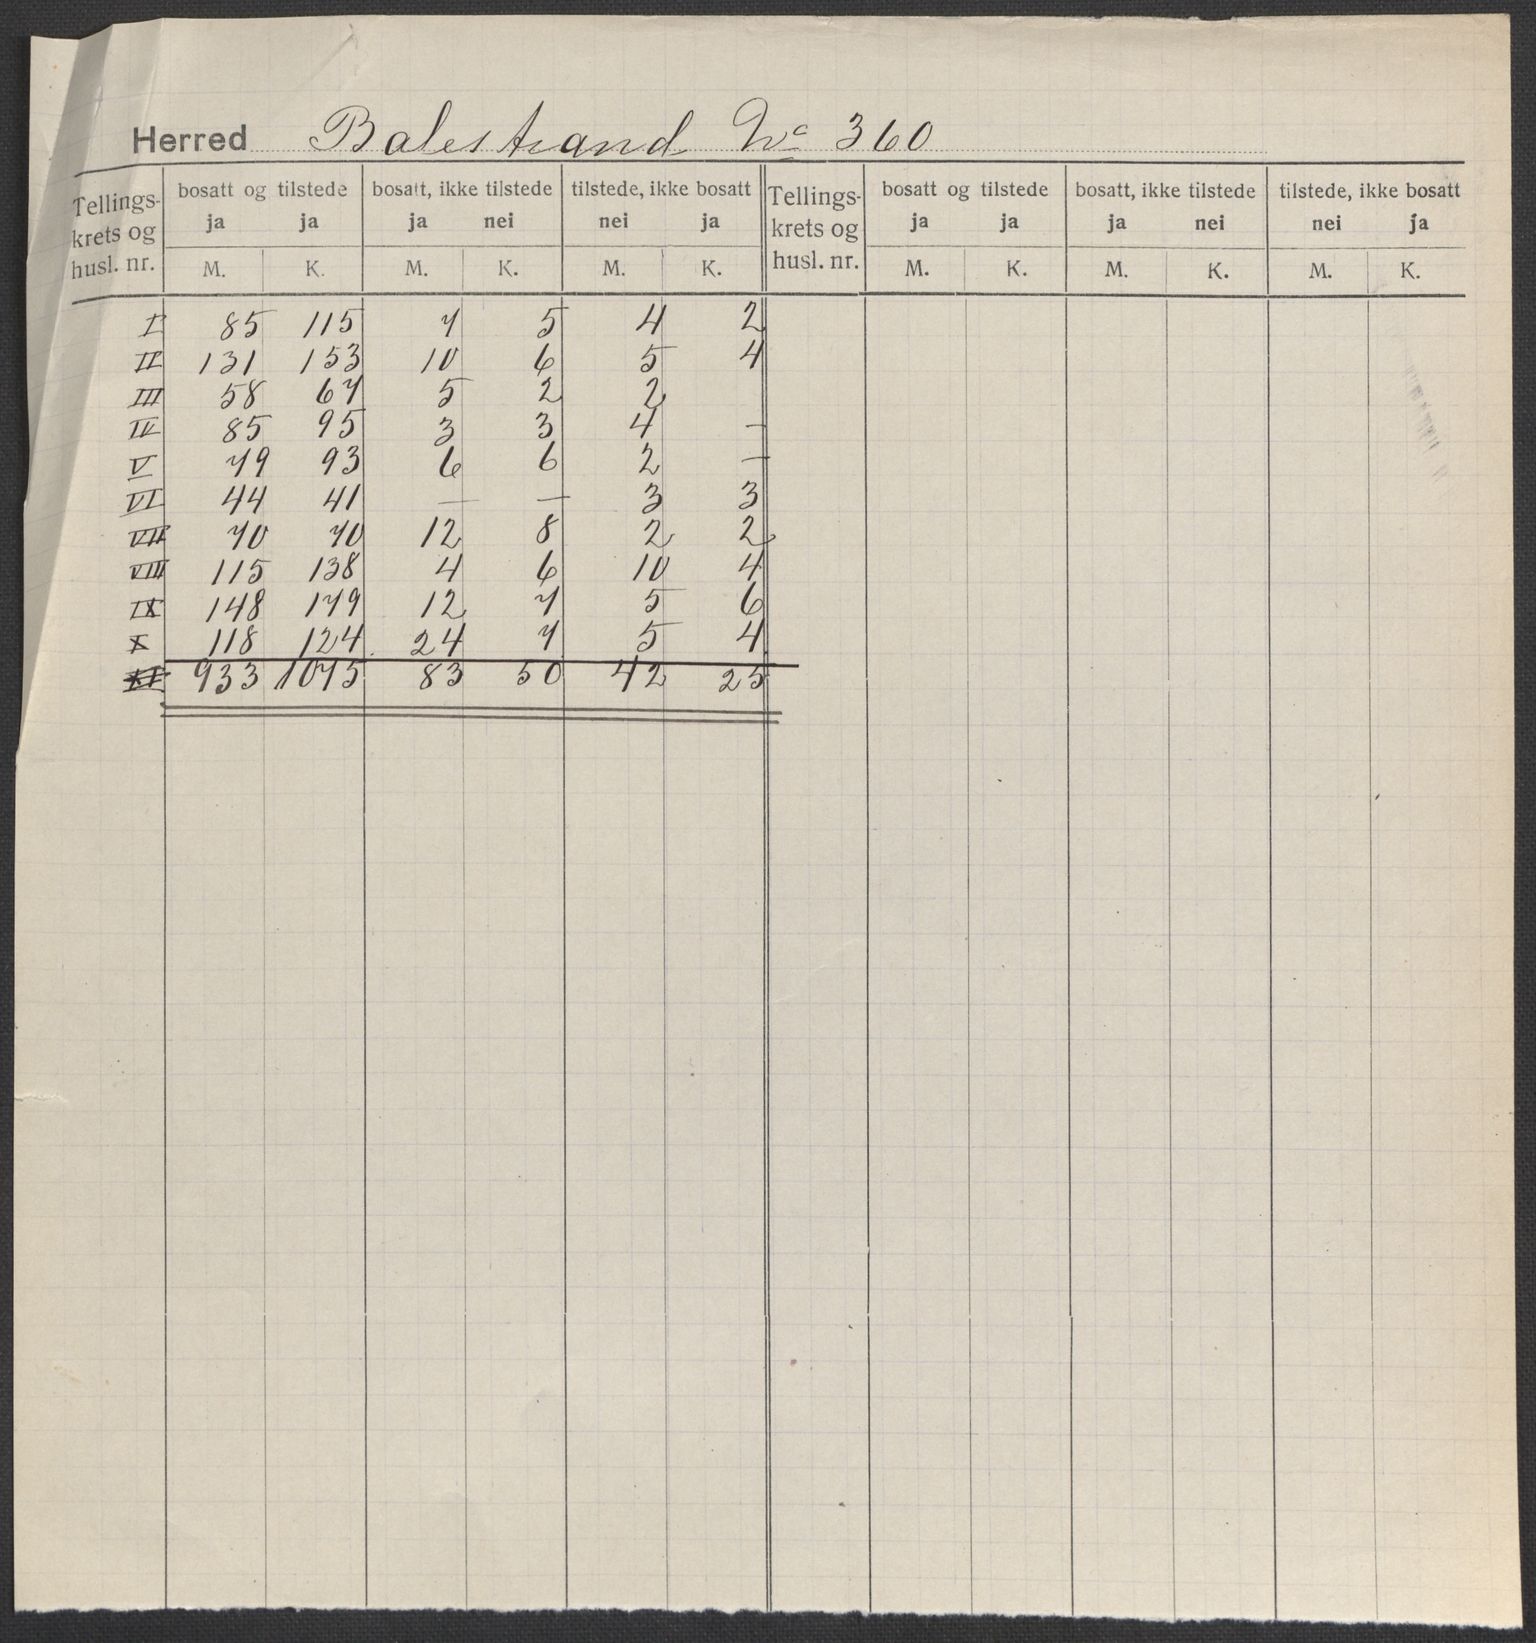 Herred Balestrand No 360
Tellings-krets og husl. nr. bosatt og tilstede bosatt, ikke tilstede tilstede, ikke bosatt Tellings-krets og husl. nr. bosatt og tilstede bosatt, ikke tilstede tilstede, ikke bosatt
ja ja ja nei nei ja ja ja ja nei nei ja
M. K. M. K. M. K. M. K. M. K. M. K.
I 85 115 7 5 4 2
II 131 153 10 6 5 4
III 58 67 5 2 2
IV 85 95 3 3 4 –
V 79 93 6 6 2 –
VI 44 41 – – 3 3
VII 70 70 12 8 2 2
VIII 115 138 4 6 10 4
IX 148 179 12 7 5 6
X 118 124 24 7 5 4
XI 933 1075 83 50 42 25